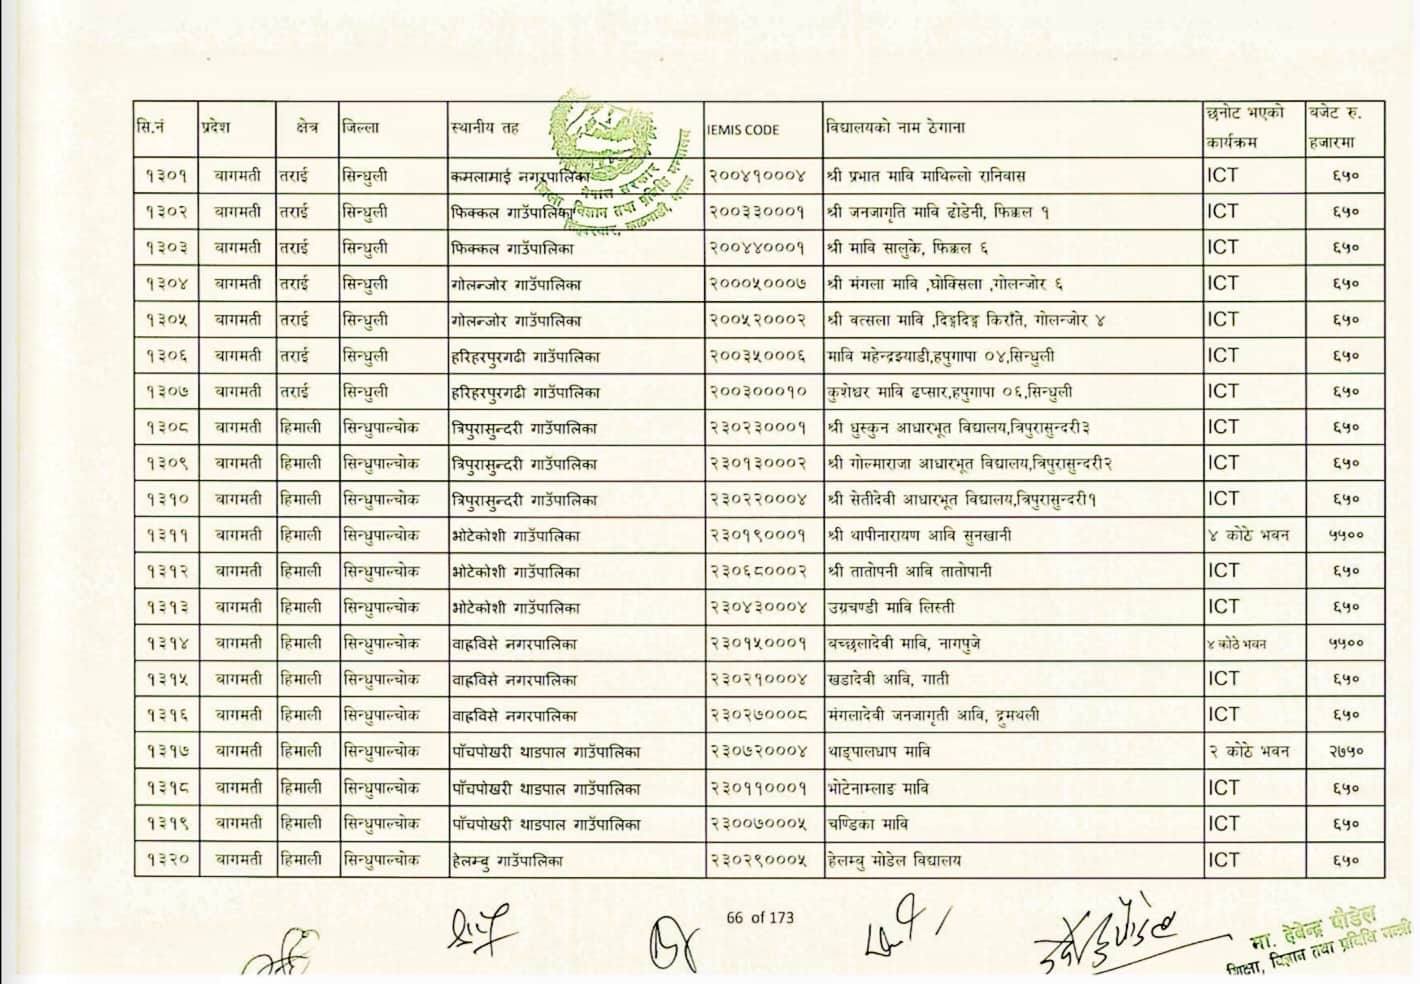 सि.नं प्रदेश क्षेत्र जिल्ला स्थानीय तह IEMIS CODE विद्यालयको नाम ठेगाना छनोट भएको कार्यक्रम बजेट रु. हजारमा
१३०१ बागमती तराई सिन्धुली कमलामाई नगरपालिका २००४१०००४ श्री प्रभात मावि माथिल्लो रानिवास ICT ६५०
१३०२ बागमती तराई सिन्धुली फिक्कल गाउँपालिका २००३३०००१ श्री जनजागृति मावि ढोडेनी, फिक्कल १ ICT ६५०
१३०३ बागमती तराई सिन्धुली फिक्कल गाउँपालिका २००४४०००१ श्री मावि सालुके, फिक्कल ६ ICT ६५०
१३०४ बागमती तराई सिन्धुली गोलन्जोर गाउँपालिका २०००५०००७ श्री मंगला मावि ,घोक्सिला ,गोलन्जोर ६ ICT ६५०
१३०५ बागमती तराई सिन्धुली गोलन्जोर गाउँपालिका २००५२०००२ श्री वत्सला मावि ,दिङ्गदिङ्ग किराँते, गोलन्जोर ४ ICT ६५०
१३०६ बागमती तराई सिन्धुली हरिहरपुरगढी गाउँपालिका २००३५०००६ मावि महेन्द्रझ्याडी,हपुगापा ०४,सिन्धुली ICT ६५०
१३०७ बागमती तराई सिन्धुली हरिहरपुरगढी गाउँपालिका २००३०००१० कुशेश्वर मावि ढप्सार,हपुगापा ०६,सिन्धुली ICT ६५०
१३०८ बागमती हिमाली सिन्धुपाल्चोक त्रिपुरासुन्दरी गाउँपालिका २३०२३०००१ श्री धुस्कुन आधारभूत विद्यालय,त्रिपुरासुन्दरी३ ICT ६५०
१३०९ बागमती हिमाली सिन्धुपाल्चोक त्रिपुरासुन्दरी गाउँपालिका २३०१३०००२ श्री गोल्माराजा आधारभूत विद्यालय,त्रिपुरासुन्दरी२ ICT ६५०
१३१० बागमती हिमाली सिन्धुपाल्चोक त्रिपुरासुन्दरी गाउँपालिका २३०२२०००४ श्री सेतीदेवी आधारभूत विद्यालय,त्रिपुरासुन्दरी१ ICT ६५०
१३११ बागमती हिमाली सिन्धुपाल्चोक भोटेकोशी गाउँपालिका २३०१९०००१ श्री थापीनारायण आवि सुनखानी ४ कोठे भवन ५५००
१३१२ बागमती हिमाली सिन्धुपाल्चोक भोटेकोशी गाउँपालिका २३०६८०००२ श्री तातोपनी आवि तातोपानी ICT ६५०
१३१३ बागमती हिमाली सिन्धुपाल्चोक भोटेकोशी गाउँपालिका २३०४३०००४ उग्रचण्डी मावि लिस्ती ICT ६५०
१३१४ बागमती हिमाली सिन्धुपाल्चोक वाह्रविसे नगरपालिका २३०१५०००१ बच्छलादेवी मावि, नागपुजे ४ कोठे भवन ५५००
१३१५ बागमती हिमाली सिन्धुपाल्चोक वाह्रविसे नगरपालिका २३०२१०००४ खडादेवी आवि, गाती ICT ६५०
१३१६ बागमती हिमाली सिन्धुपाल्चोक वाह्रविसे नगरपालिका २३०२७०००८ मंगलादेवी जनजागृती आवि, द्रुमथली ICT ६५०
१३१७ बागमती हिमाली सिन्धुपाल्चोक पाँचपोखरी थाडपाल गाउँपालिका २३०७२०००४ थाङ्पालधाप मावि २ कोठे भवन २७५०
१३१८ बागमती हिमाली सिन्धुपाल्चोक पाँचपोखरी थाडपाल गाउँपालिका २३०११०००१ भोटेनाम्लाङ मावि ICT ६५०
१३१९ बागमती हिमाली सिन्धुपाल्चोक पाँचपोखरी थाडपाल गाउँपालिका २३००७०००५ चण्डिका मावि ICT ६५०
१३२० बागमती हिमाली सिन्धुपाल्चोक हेलम्बु गाउँपालिका २३०२९०००५ हेलम्बु मोडेल विद्यालय ICT ६५०
66 of 173
मा. देवेन्द्र पौडेल
शिक्षा, विज्ञान तथा प्रविधि मन्त्री